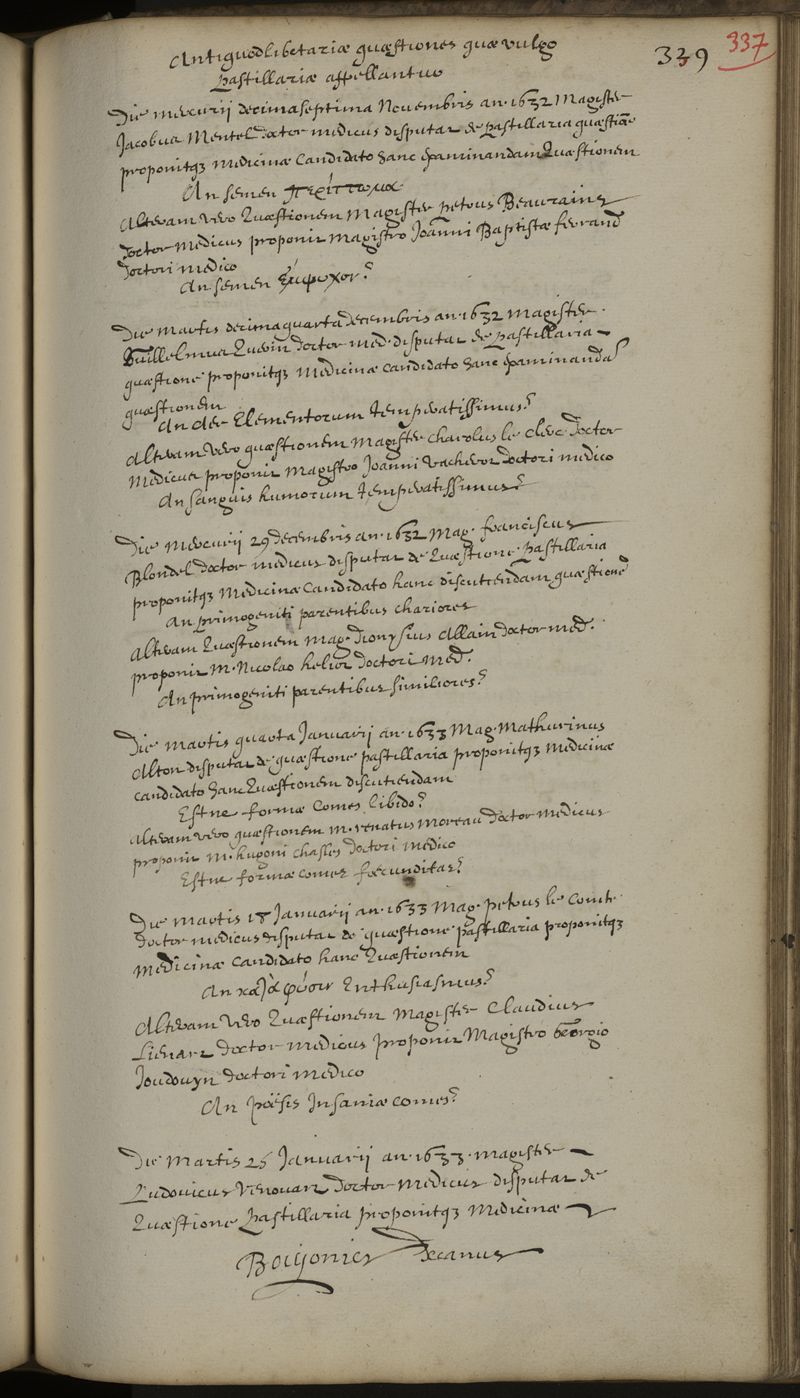 Antiquodlibetariæ quæstiones quæ vulgo
pastillariæ appellantur
339
337
Die mercurii decimaseptima Novembris an. 1632 Magister
Jacobus Mentel doctor medicus disputat de pastillaria quæstiōe
proponitqз medicinæ Candidato hanc examinandam Quæstionem
An semen περίττωμα
Alteram vero Quæstionem Magister petrus Beaurains
doctor medicus proponit magistro Joanni Baptistæ ferrand
doctori medico
An semen ἔμψυχον?
Die Martis decimaquarta decembris an. 1632 magister
Guillelmus doctor med. disputat de pastillaria
quæstione proponitqз medicinæ candidato hanc examinandā
quæstionem
An aer Elementorum temperatissimus?
Alteram vero quæstionem magister Charolus le Clerc doctor
medicus proponit magistro Joanni vacherot doctori medico
An sanguis humorum temperatissimus?
Die mercurii 29 decembris an. 1632 Mag. franciscus
Blondel doctor medicus disputat de Quæstione pastillaria
proponitqз medicinæ candidato hanc discutiendam quæstionē
An primogeniti parentibus chariores
Alteram Quæstionem mag. Dionysius Allain doctor med.
proponit M. Nicolao helior doctori med.
An primogeniti parentibus similiores?
Die martis quarta Januarij an. 1633 Mag. Mathurinus
Alton disputat de quæstione pastillaria proponitqз medicinæ
candidato hanc Quæstionem discutiendam
Estne formæ comes libido?
Alteram vero quæstionem M. renatus moreau doctor medicus
proponit M. hugoni chasles doctori medico
Estne formæ comes fœcunditas?
Die martis 18 Januarij an. 1633 Mag. petrus le Comte
doctor medicus disputat de quæstione pastillaria proponitqз
medicinæ Candidato hanc Quæstionem
An κατὰ φύσιν Enthusiasmus?
Alteram vero Quæstionem Magister Claudius
Lienart doctor medicus proponit Magistro Georgio
Joudouyn doctori medico
An poësis Insaniæ comes?
Die Martis 25 Januarij an. 1633. magister
Ludovicus renouart doctor medicus disputat de
Quæstione pastillaria proponitqз medicinæ
Bourgonier Decanus